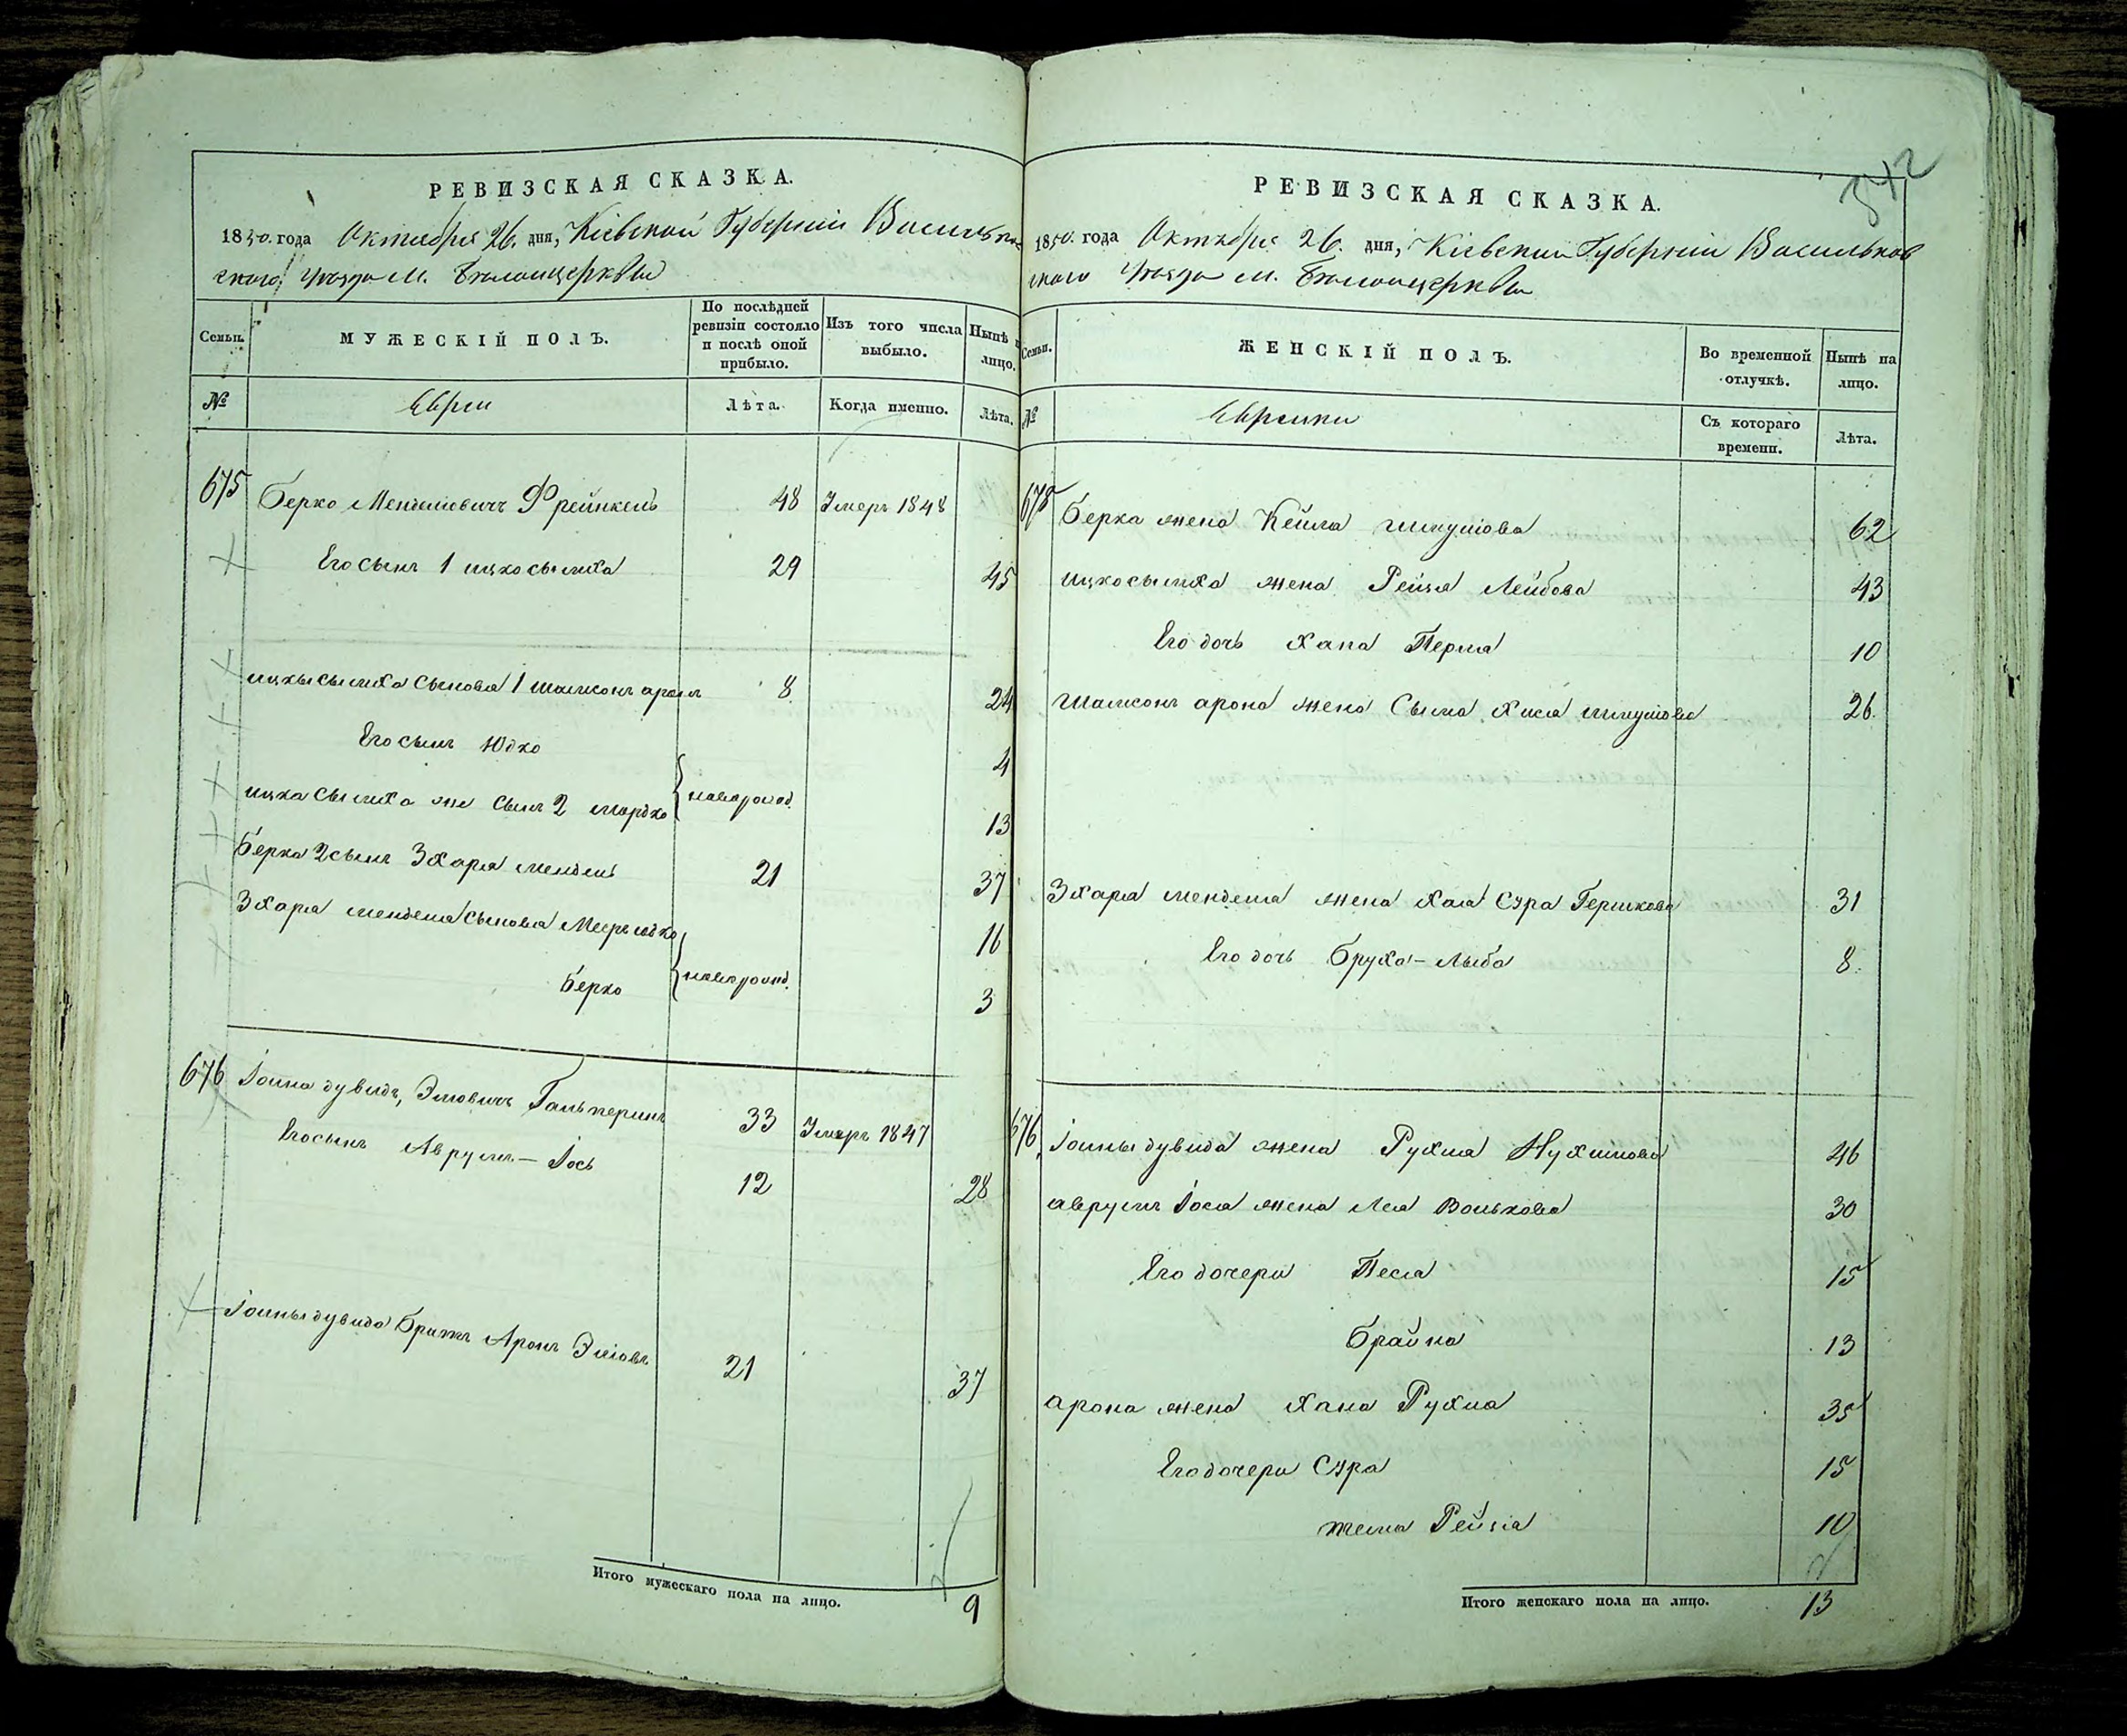 РЕВИЗСКАЯ СКАЗКА.
1850. года Октября 26. дня, Кіевской Губерніи Васильков
ского уезда м. Белоцеркви
Семьи.
МУЖЕСКІЙ ПОЛЪ.
По послѣдней ревизіи состояло и послѣ оной прибыло.
Изъ того числа выбыло.
Нынѣ на лицо.
№
Евреи
Лѣта.
Когда именно.
Лѣта.
675 Берко Менделовичъ Френкель 48 Умеръ 1848
Его сынъ 1 ицко сымха 29 45
ицкы сымха сыновья 1 шамсонъ аронъ 8 24
Его сынъ Юдко 4
ицка сымха же сынъ 2 мордко новорожд. 13
Берка 2 сынъ Зхаря мендель 21 37
Зхаря менделя сыновья 16
Берко новорожд. 3
676 Іоина дувидъ, Элювичъ Гальперинъ 33 Умеръ 1847
Его сынъ Аврумъ - Іось 12 28
Іоины дувида братъ Аронъ Эліовъ 21 37
Итого мужескаго пола на лицо. 9
342
РЕВИЗСКАЯ СКАЗКА.
1850. года Октября 26. дня, Кіевской Губерніи Васильков
ского уезда м. Белоцеркви
Семьи.
ЖЕНСКІЙ ПОЛЪ.
Во временной отлучкѣ.
Нынѣ на лицо.
№
Еврейки
Съ котораго времени.
Лѣта.
675 Берка жена Кейла шмулова 62
ицко сымха жена Рейзя Лейбова 43
Его дочь Хана Перля 10
шамсонъ арона жена Сыма Хася шмулова 26
Зхаря менделя жена Хая Сура Гершкова 31
Его дочь Бруха - Лыба 8.
676. Іоины дувида жена Рухля Нухимова 46
аврумъ Іося жена Лея Волькова 30
Его дочери Песя 15
Брайна 13
арона жена Хана Рухля 35
Его дочери Сура 15
темa Рейзя 10
Итого женскаго пола на лицо. 13